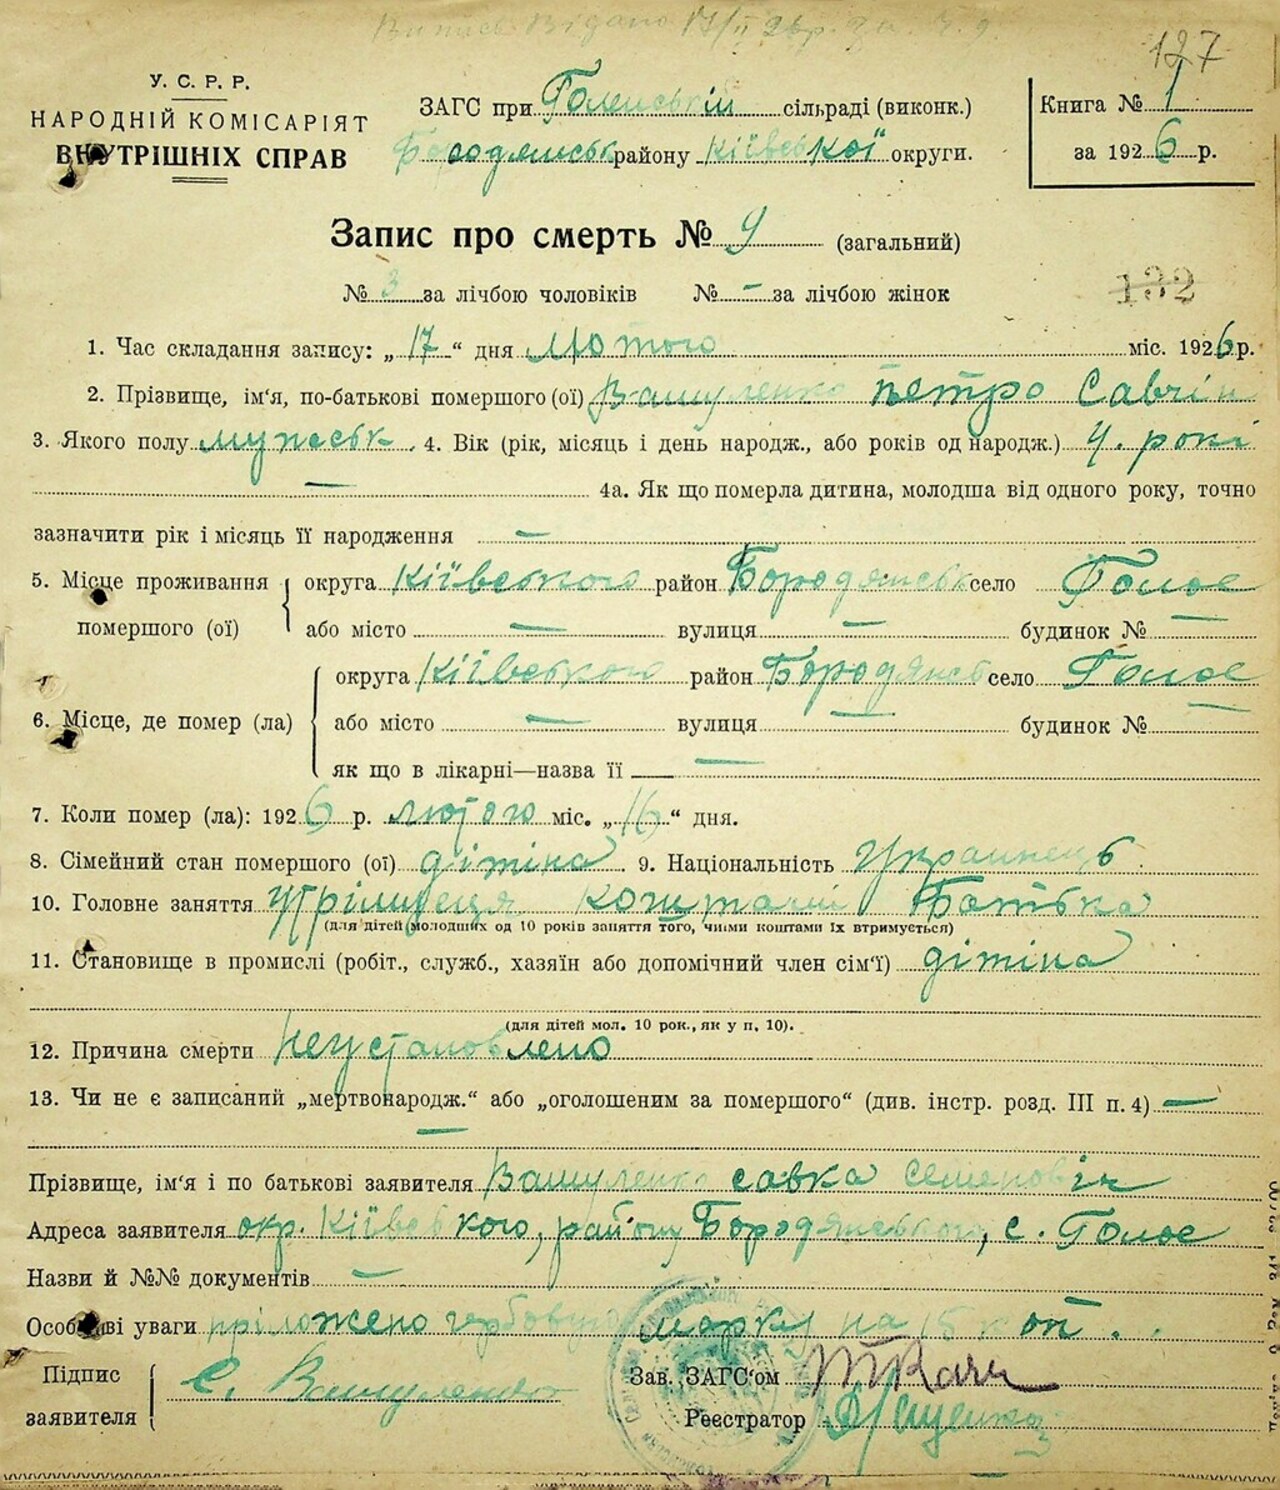 Випись Видано 17/II 26р. За. Ч. 9.
127
У. С. Р. Р.
НАРОДНІЙ КОМІСАРІЯТ
ВНУТРІШНІХ СПРАВ
ЗАГС при Голенській сільраді (виконк.)
Бородянськ району Київської округи.
Книга № 1
за 1926 р.
Запис про смерть № 9 (загальний)
№ 3 за лічбою чоловіків № – за лічбою жінок
132
1. Час складання запису: „17“ дня Лютого міс. 1926 р.
2. Прізвище, ім'я, по-батькові помершого (ої) Вашуленко Петро Савчін
3. Якого полу мужеськ. 4. Вік (рік, місяць і день народж., або років од народж.) 4. рокі
— 4а. Як що померла дитина, молодша від одного року, точно
зазначити рік і місяць її народження —
5. Місце проживання помершого (ої) округа Київського район Бородянськ село
або місто — вулиця — будинок № —
6. Місце, де помер (ла) округа Київського район Бородянськ село
або місто — вулиця — будинок № —
як що в лікарні—назва її —
7. Коли помер (ла): 1926 р. лютого міс. „16“ дня.
8. Сімейний стан помершого (ої) дітіна. 9. Національність Украинець.
10. Головне заняття коштамі Батька
(для дітей молодших од 10 років заняття того, чиїми коштами їх втримується)
11. Становище в промислі (робіт., служб., хазяїн або допомічний член сім'ї) дітіна
(для дітей мол. 10 рок., як у п. 10).
12. Причина смерти неустановлено
13. Чи не є записаний „мертвонародж.“ або „оголошеним за помершого“ (див. інстр. розд. III п. 4) —
—
Прізвище, ім'я і по батькові заявителя Вашуленко савка семеновіч
Адреса заявителя окр. Київського, району Бородянського, с.
Назви й №№ документів —
Особливі уваги пріложено гербовую марку на 15 коп.
Підпис заявителя С. Вашуленко
Зав. ЗАГС'ом
Реєстратор